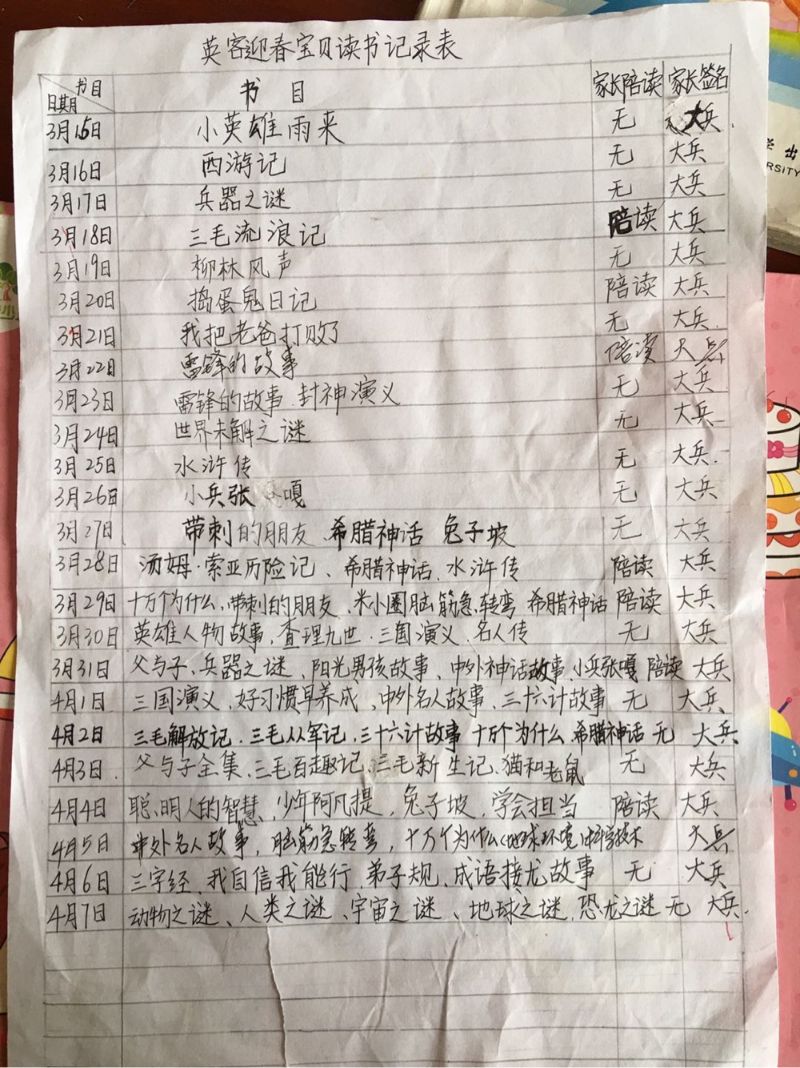 英客迎春宝贝读书记录表
书目 日期 书 目 家长陪读 家长签名
3月15日 小英雄雨来 无 大兵
3月16日 西游记 无 大兵
3月17日 兵器之谜 无 大兵
3月18日 三毛流浪记 陪读 大兵
3月19日 柳林风声 无 大兵
3月20日 捣蛋鬼日记 陪读 大兵
3月21日 我把老爸打败了 无 大兵
3月22日 雷锋的故事 陪读 大兵
3月23日 雷锋的故事、封神演义 无 大兵
3月24日 世界未解之谜 无 大兵
3月25日 水浒传 无 大兵
3月26日 小兵张嘎 无 大兵
3月27日 带刺的朋友、希腊神话 兔子坡 无 大兵
3月28日 汤姆·索亚历险记、希腊神话、水浒传 陪读 大兵
3月29日 十万个为什么、带刺的朋友、米小圈脑筋急转弯 希腊神话 陪读 大兵
3月30日 英雄人物故事,查理九世、三国演义、名人传 无 大兵
3月31日 父与子、兵器之谜、阳光男孩故事、中外神话故事、小兵张嘎 陪读 大兵
4月1日 三国演义、好习惯早养成、中外名人故事、三十六计故事 无 大兵
4月2日 三毛解放记、三毛从军记、三十六计故事 十万个为什么、希腊神话 无 大兵
4月3日 父与子全集、三毛百趣记、三毛新生记、猫和老鼠 无 大兵
4月4日 聪明人的智慧、少年阿凡提、兔子坡,学会担当 陪读 大兵
4月5日 中外名人故事,脑筋急转弯,十万个为什么(地球环境)科学技术 大兵
4月6日 三字经、我自信我能行、弟子规、成语接龙故事 无 大兵
4月7日 动物之谜、人类之谜、宇宙之谜、地球之谜、恐龙之谜 无 大兵